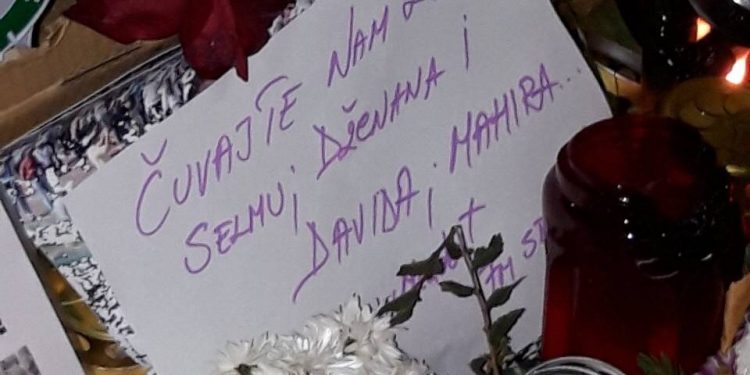 ČUVAJTE NAM
SELMU i DŽENANA i
DAVIDA i MAHIRA...